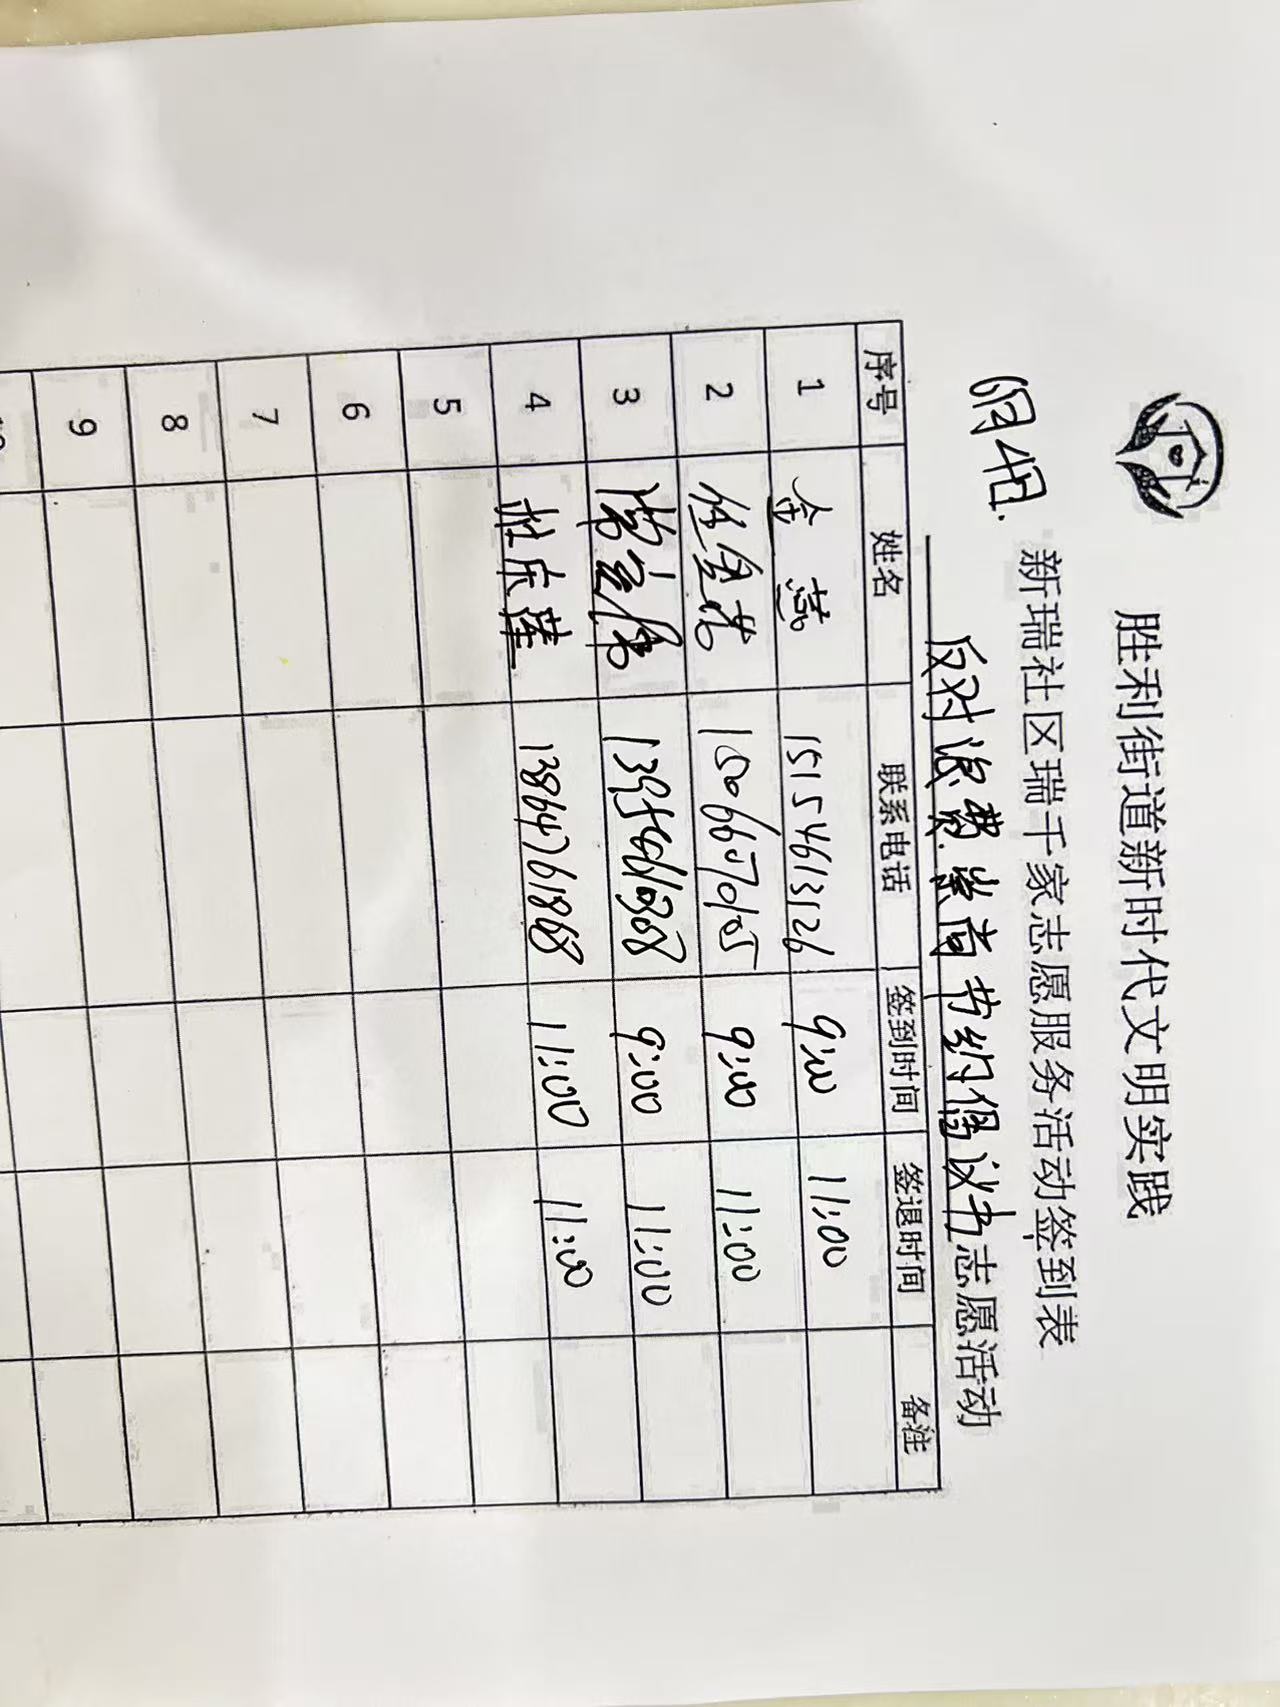 胜利街道新时代文明实践
新瑞社区瑞千家志愿服务活动签到表
6月4日.
反对浪费 崇尚节约倡议书志愿活动
序号 姓名 联系电话 签到时间 签退时间 备注
1 金燕 15154613126 9:00 11:00
2 9:00 11:00
3 9:00 11:00
4 杜庆莲 13864761868 11:00 11:00
5
6
7
8
9